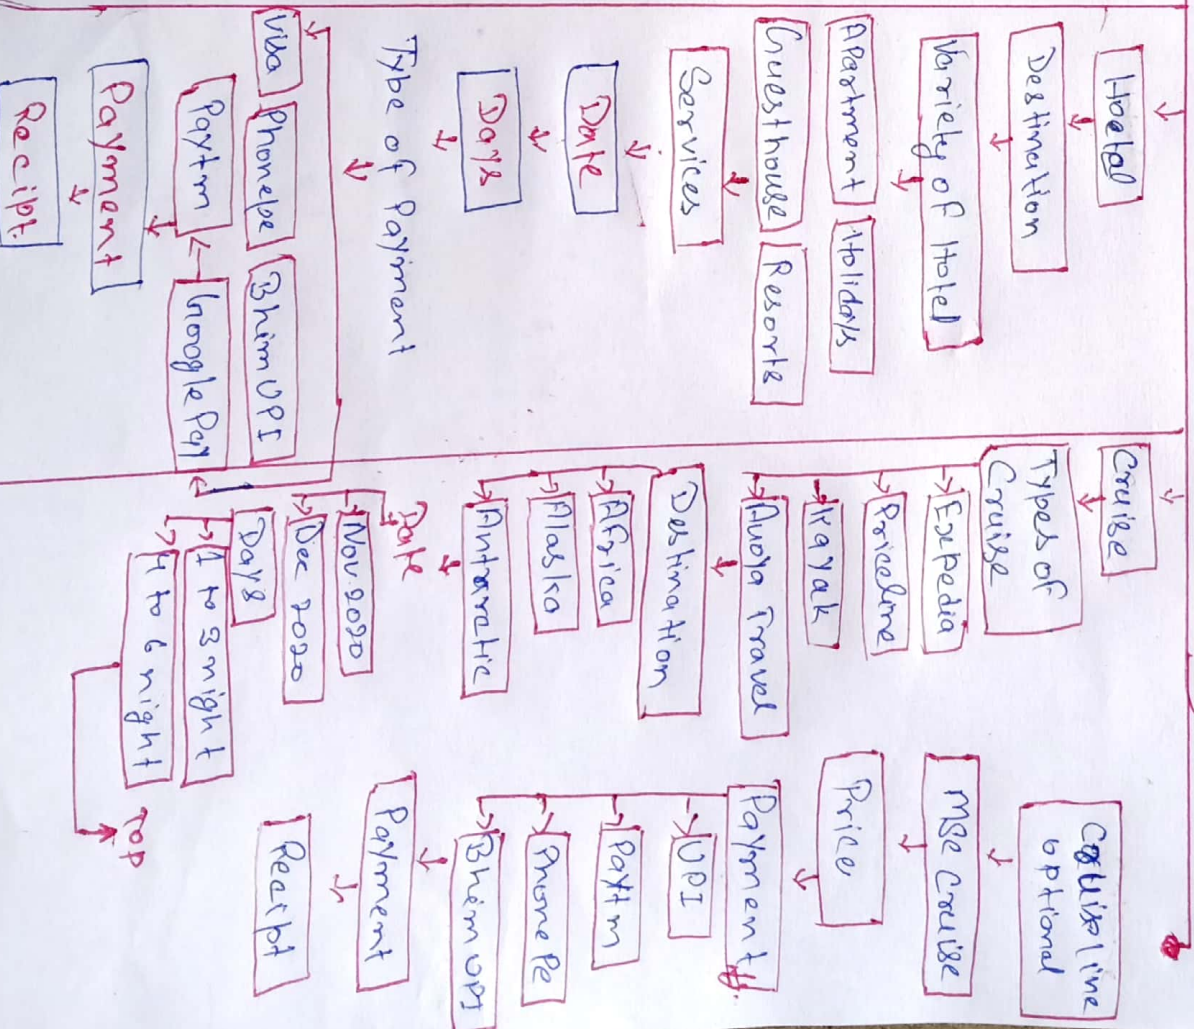 Hoetal
Destination
Variety of Hotel
Apartment
Holidays
Guesthouse
Resorts
Services
Date
Days
Type of Payment
Visa
Phonepe
Bhim UPI
Paytm
Google Pay
Payment
Recibt.
Cruise
Types of
Cruise
Expedia
Priceline
Kayak
Avoya Travel
Destination
Africa
Alaska
Antaratic
Date
Nov. 2020
Dec 2020
Days
1 to 3 night
4 to 6 night
TOP
line
optional
MSC Cruise
Price
Payment
UPI
Paytm
PhonePe
Bhim UPI
Payment
Recibt